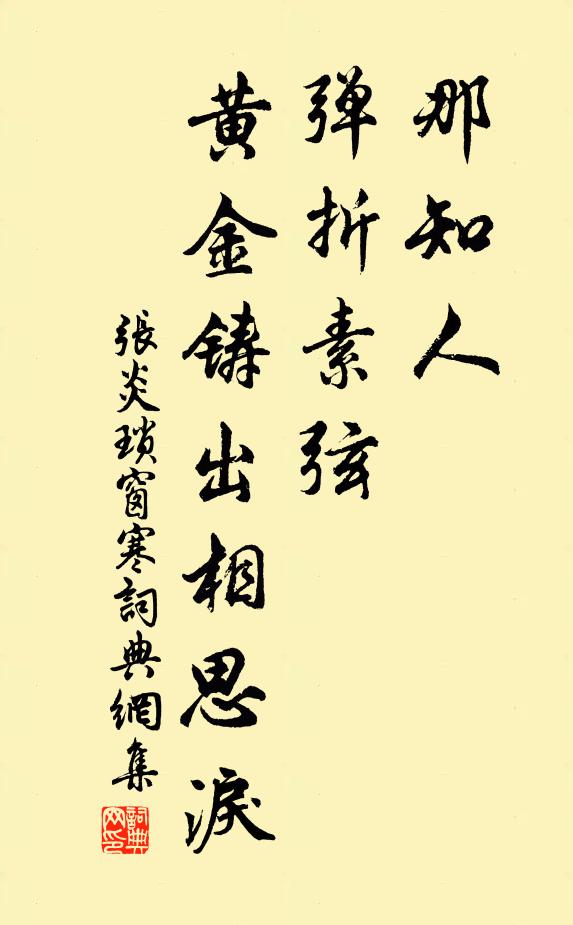 那知人
弹折素弦
黄金铸出相思淚
張炎瑣窗寒詞典網集
詞典网印